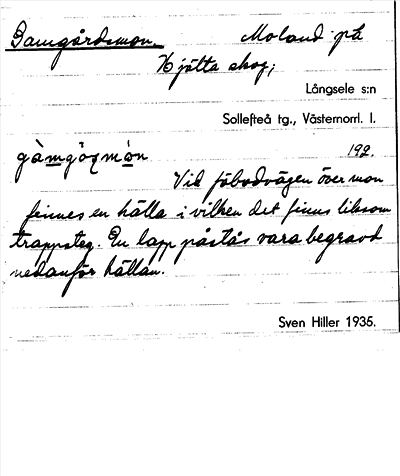 Gamgårdsmon. Moland på
Hjälta skog;
Långsele s:n
Sollefteå tg., Västernorrl. l.
gàmgöʐmòn 192.
Vid fäbodvägen över mon
finnes en hälla i vilken det finns liksom
trappsteg. En lapp påstås vara begravd
nedanför hällan.
Sven Hiller 1935.